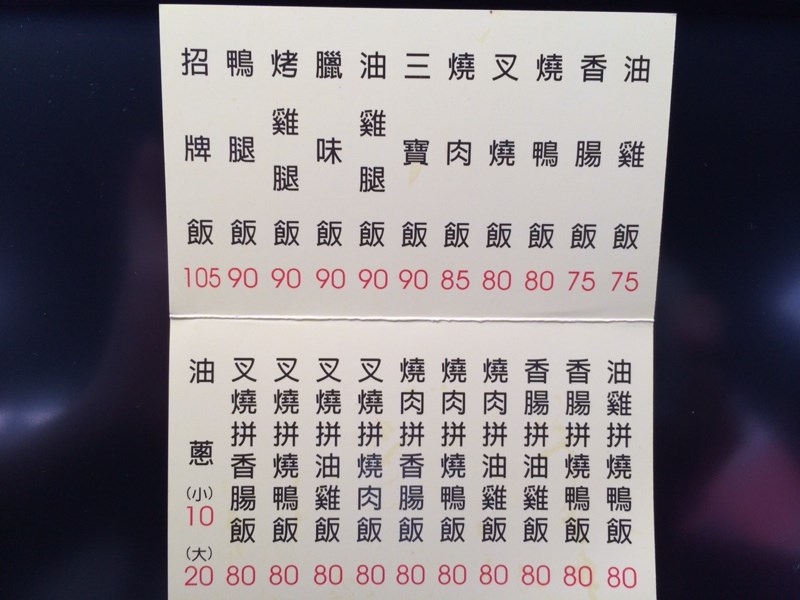 油雞飯 75
香腸飯 75
燒鴨飯 80
叉燒飯 80
燒肉飯 85
三寶飯 90
油雞腿飯 90
臘味飯 90
烤雞腿飯 90
鴨腿飯 90
招牌飯 105
油雞拼燒鴨飯 80
香腸拼燒鴨飯 80
香腸拼油雞飯 80
燒肉拼油雞飯 80
燒肉拼燒鴨飯 80
燒肉拼香腸飯 80
叉燒拼燒肉飯 80
叉燒拼油雞飯 80
叉燒拼燒鴨飯 80
叉燒拼香腸飯 80
油蔥 (小) 10 (大) 20